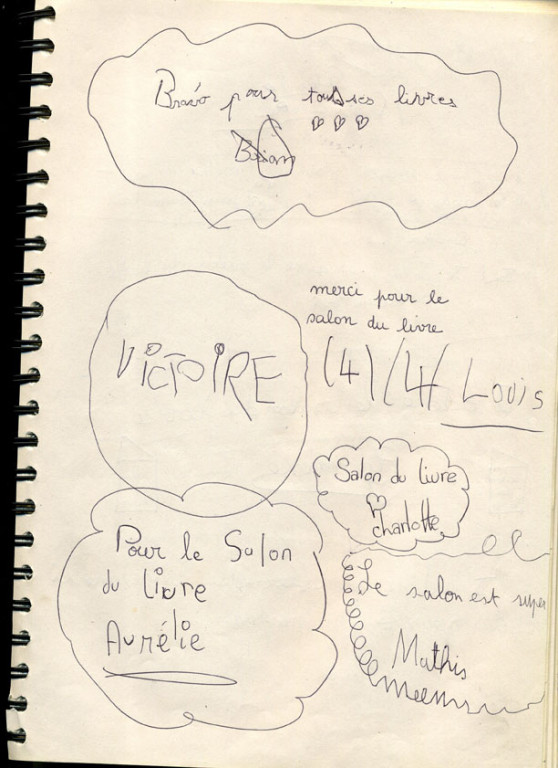 Bravo pour tous ses livres
VICTOIRE
merci pour le
salon du livre
(4)/(4/ Louis
Salon du livre
charlotte
Pour le Salon
du livre
Aurélie
Le salon est super
Mathis